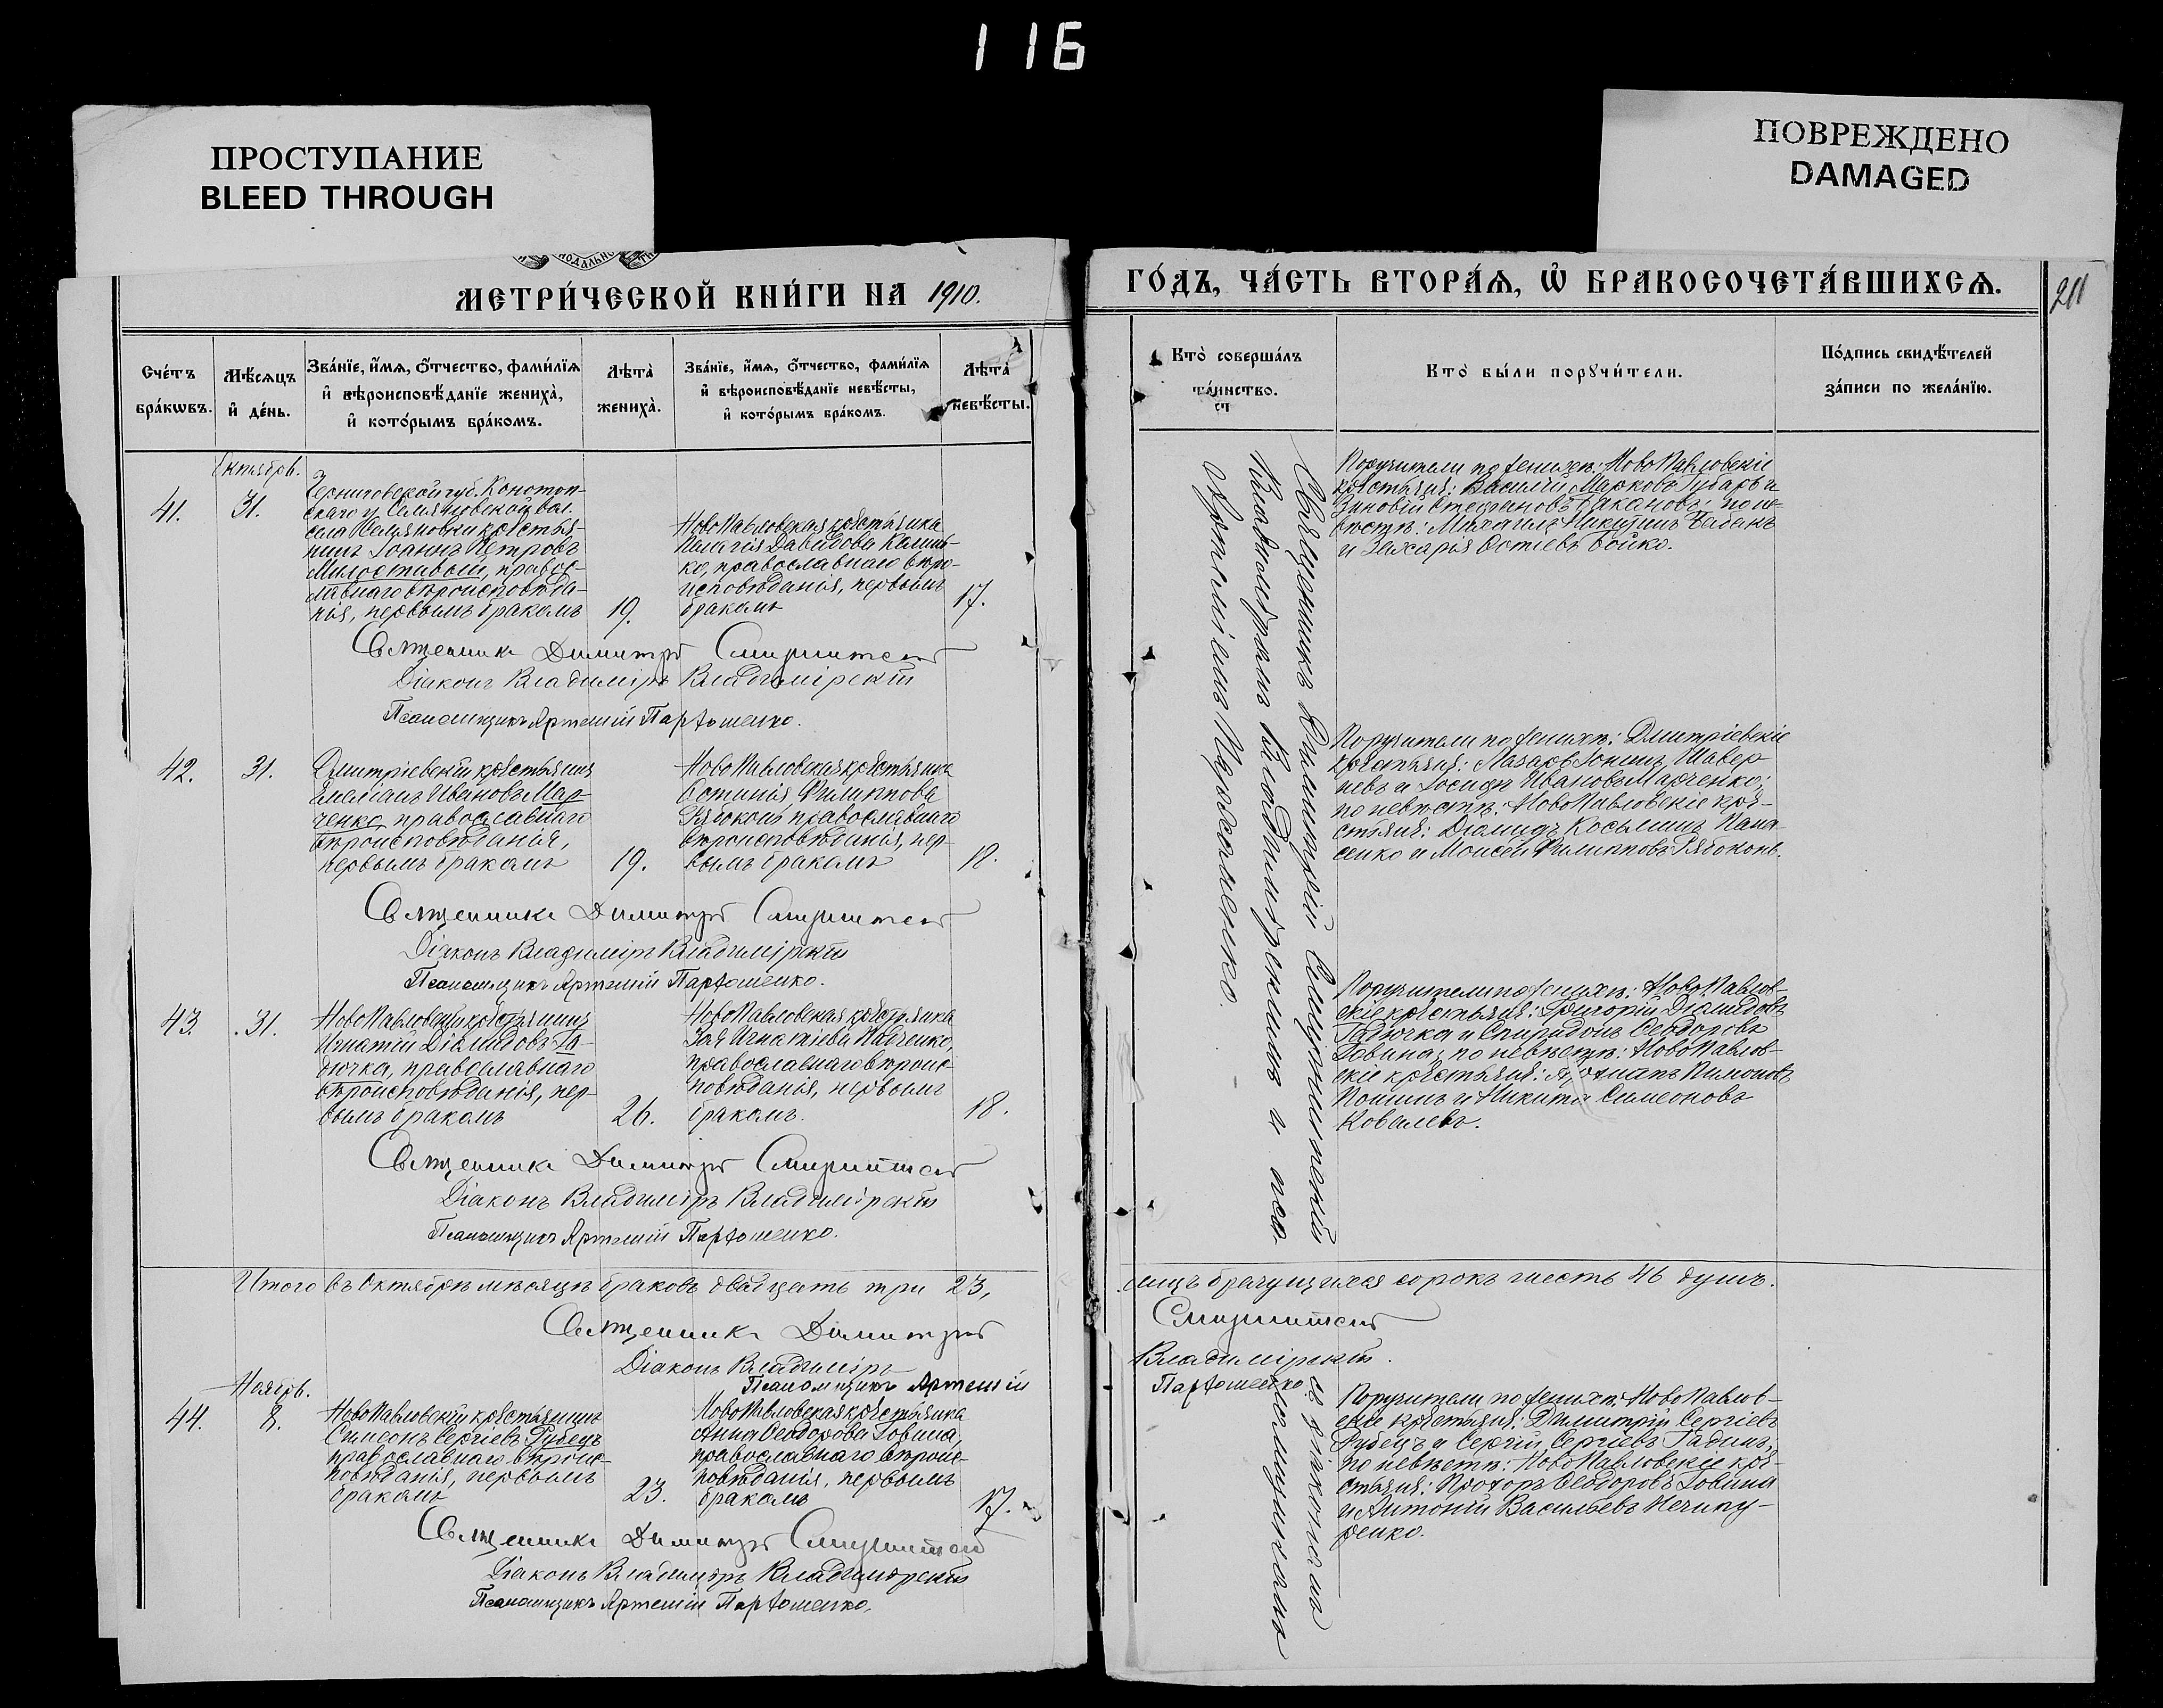 116
ПРОСТУПАНИЕ
BLEED THROUGH
ПОВРЕЖДЕНО
DAMAGED
МЕТРИ́ЧЕСКОЙ КНИ́ГИ НА 1910.
ГО́ДЪ, ЧА́СТЬ ВТОРА́Ѧ, Ѽ БРАКОСОЧЕТА́ВШИХСѦ.
211
Сче́тъ
бра́кѡвъ.
Мѣ́сѧцъ
и҆ де́нь.
Зва́нїе, и҆́мѧ, ѻ҆́тчество, фами́лїѧ
и҆ вѣроисповѣ́данїе жениха̀,
и҆ кото́рымъ бра́комъ.
Лѣта̀
жениха̀.
Зва́нїе, и҆́мѧ, ѻ҆́тчество, фами́лїѧ
и҆ вѣроисповѣ́данїе невѣ́сты,
и҆ кото́рымъ бра́комъ.
Лѣта̀
невѣ́сты.
Кто̀ соверша́лъ
та́инство.
Кто̀ бы́ли порꙋчи́тели.
По́дпись свидѣ́телей
за́писи по жела́нїю.
Октябрь.
41.
31.
Черниговской губ. Конотоп-
скаго у. Семяновской вол.
села Семяновки крестья-
нинъ Іоаннъ Петровъ
Милостивый, правос-
лавнаго вѣроисповѣда-
нія, первымъ бракомъ
19.
НовоПавловская крестьянка
Пелагія Давидова Калиш-
ко, православнаго вѣро-
исповѣданія, первымъ
бракомъ
17.
Поручители по женихѣ: НовоПавловскіе
крестьяне: Василій Марковъ Губарь и
Зиновій Стефановъ Баскановъ; по не-
вѣстѣ: Михаилъ Никитинъ Бабакъ
и Захарія Остіевъ Бойко.
Священникъ Димитрій Смирнитскій
Діаконъ Владиміръ Владимірскій
Псаломщикъ Артемій Пархоменко.
42.
31.
Дмитріевскій крестьянинъ
Емеліанъ Ивановъ Мар-
ченко, православнаго
вѣроисповѣданія,
первымъ бракомъ
19.
НовоПавловская крестьянка
Устинія Филиппова
Рябоконь православнаго
вѣроисповѣданія, пер-
вымъ бракомъ
18.
Поручители по женихѣ: Дмитріевскіе
крестьяне: Лазарь Іонинъ Шавер
невъ и Іосифъ Ивановъ Марченко;
по невѣстѣ: НовоПавловскіе кре-
стьяне: Діомидъ Косьминъ Пана-
сенко и Моисей Филипповъ Рябоконь.
Священникъ Димитрій Смирнитскій
Діаконъ Владиміръ Владимірскій
Псаломщикъ Артемій Пархоменко.
43.
31.
НовоПавловскій крестьянинъ
Игнатій Діамидовъ Га-
дючка, православнаго
вѣроисповѣданія, пер-
вымъ бракомъ
26.
НовоПавловская крестьянка
Зоя Игнатіева Савченко,
православнаго вѣроис-
повѣданія, первымъ
бракомъ.
18.
Поручители по женихѣ: НовоПавлов-
скіе крестьяне: Григорій Діамидовъ
Гадючка и Спиридонъ Ѳеодоровъ
Говина; по невѣстѣ: НовоПавлов-
скіе крестьяне: Пимоновъ
и Никита Симеоновъ
Ковалевъ.
Священникъ Димитрій Смирнитскій
Діаконъ Владиміръ Владимірскій
Псаломщикъ Артемій Пархоменко.
Священникъ Димитрій Смирнитскій съ діакономъ
Владиміромъ Владимірскимъ и псаломщикомъ
Артеміемъ Пархоменко.
Итого въ Октябрѣ мѣсяцѣ браковъ двадцать три 23,
лицъ брачущихся сорокъ шесть 46 душъ.
Священникъ Димитрій Смирнитскій
Діаконъ Владиміръ Владимірскій.
Псаломщикъ Артемій Пархоменко.
Ноябрь.
44.
8.
НовоПавловскій крестьянинъ
Симеонъ Сергіевъ Рубецъ
православнаго вѣроис-
повѣданія, первымъ
бракомъ
23.
НовоПавловская крестьянка
Анна Ѳеодорова Говина,
православнаго вѣроис-
повѣданія, первымъ
бракомъ
17.
Поручители по женихѣ: НовоПавлов-
скіе крестьяне: Димитрій Сергіевъ
Рубецъ и Сергій Сергіевъ Гадинъ;
по невѣстѣ: НовоПавловскіе кре-
стьяне: Прохоръ Ѳеодоровъ Говина
и Антоній Васильевъ Нечипу-
ренко.
Священникъ Димитрій Смирнитскій
Діаконъ Владиміръ Владимірскій
Псаломщикъ Артемій Пархоменко.